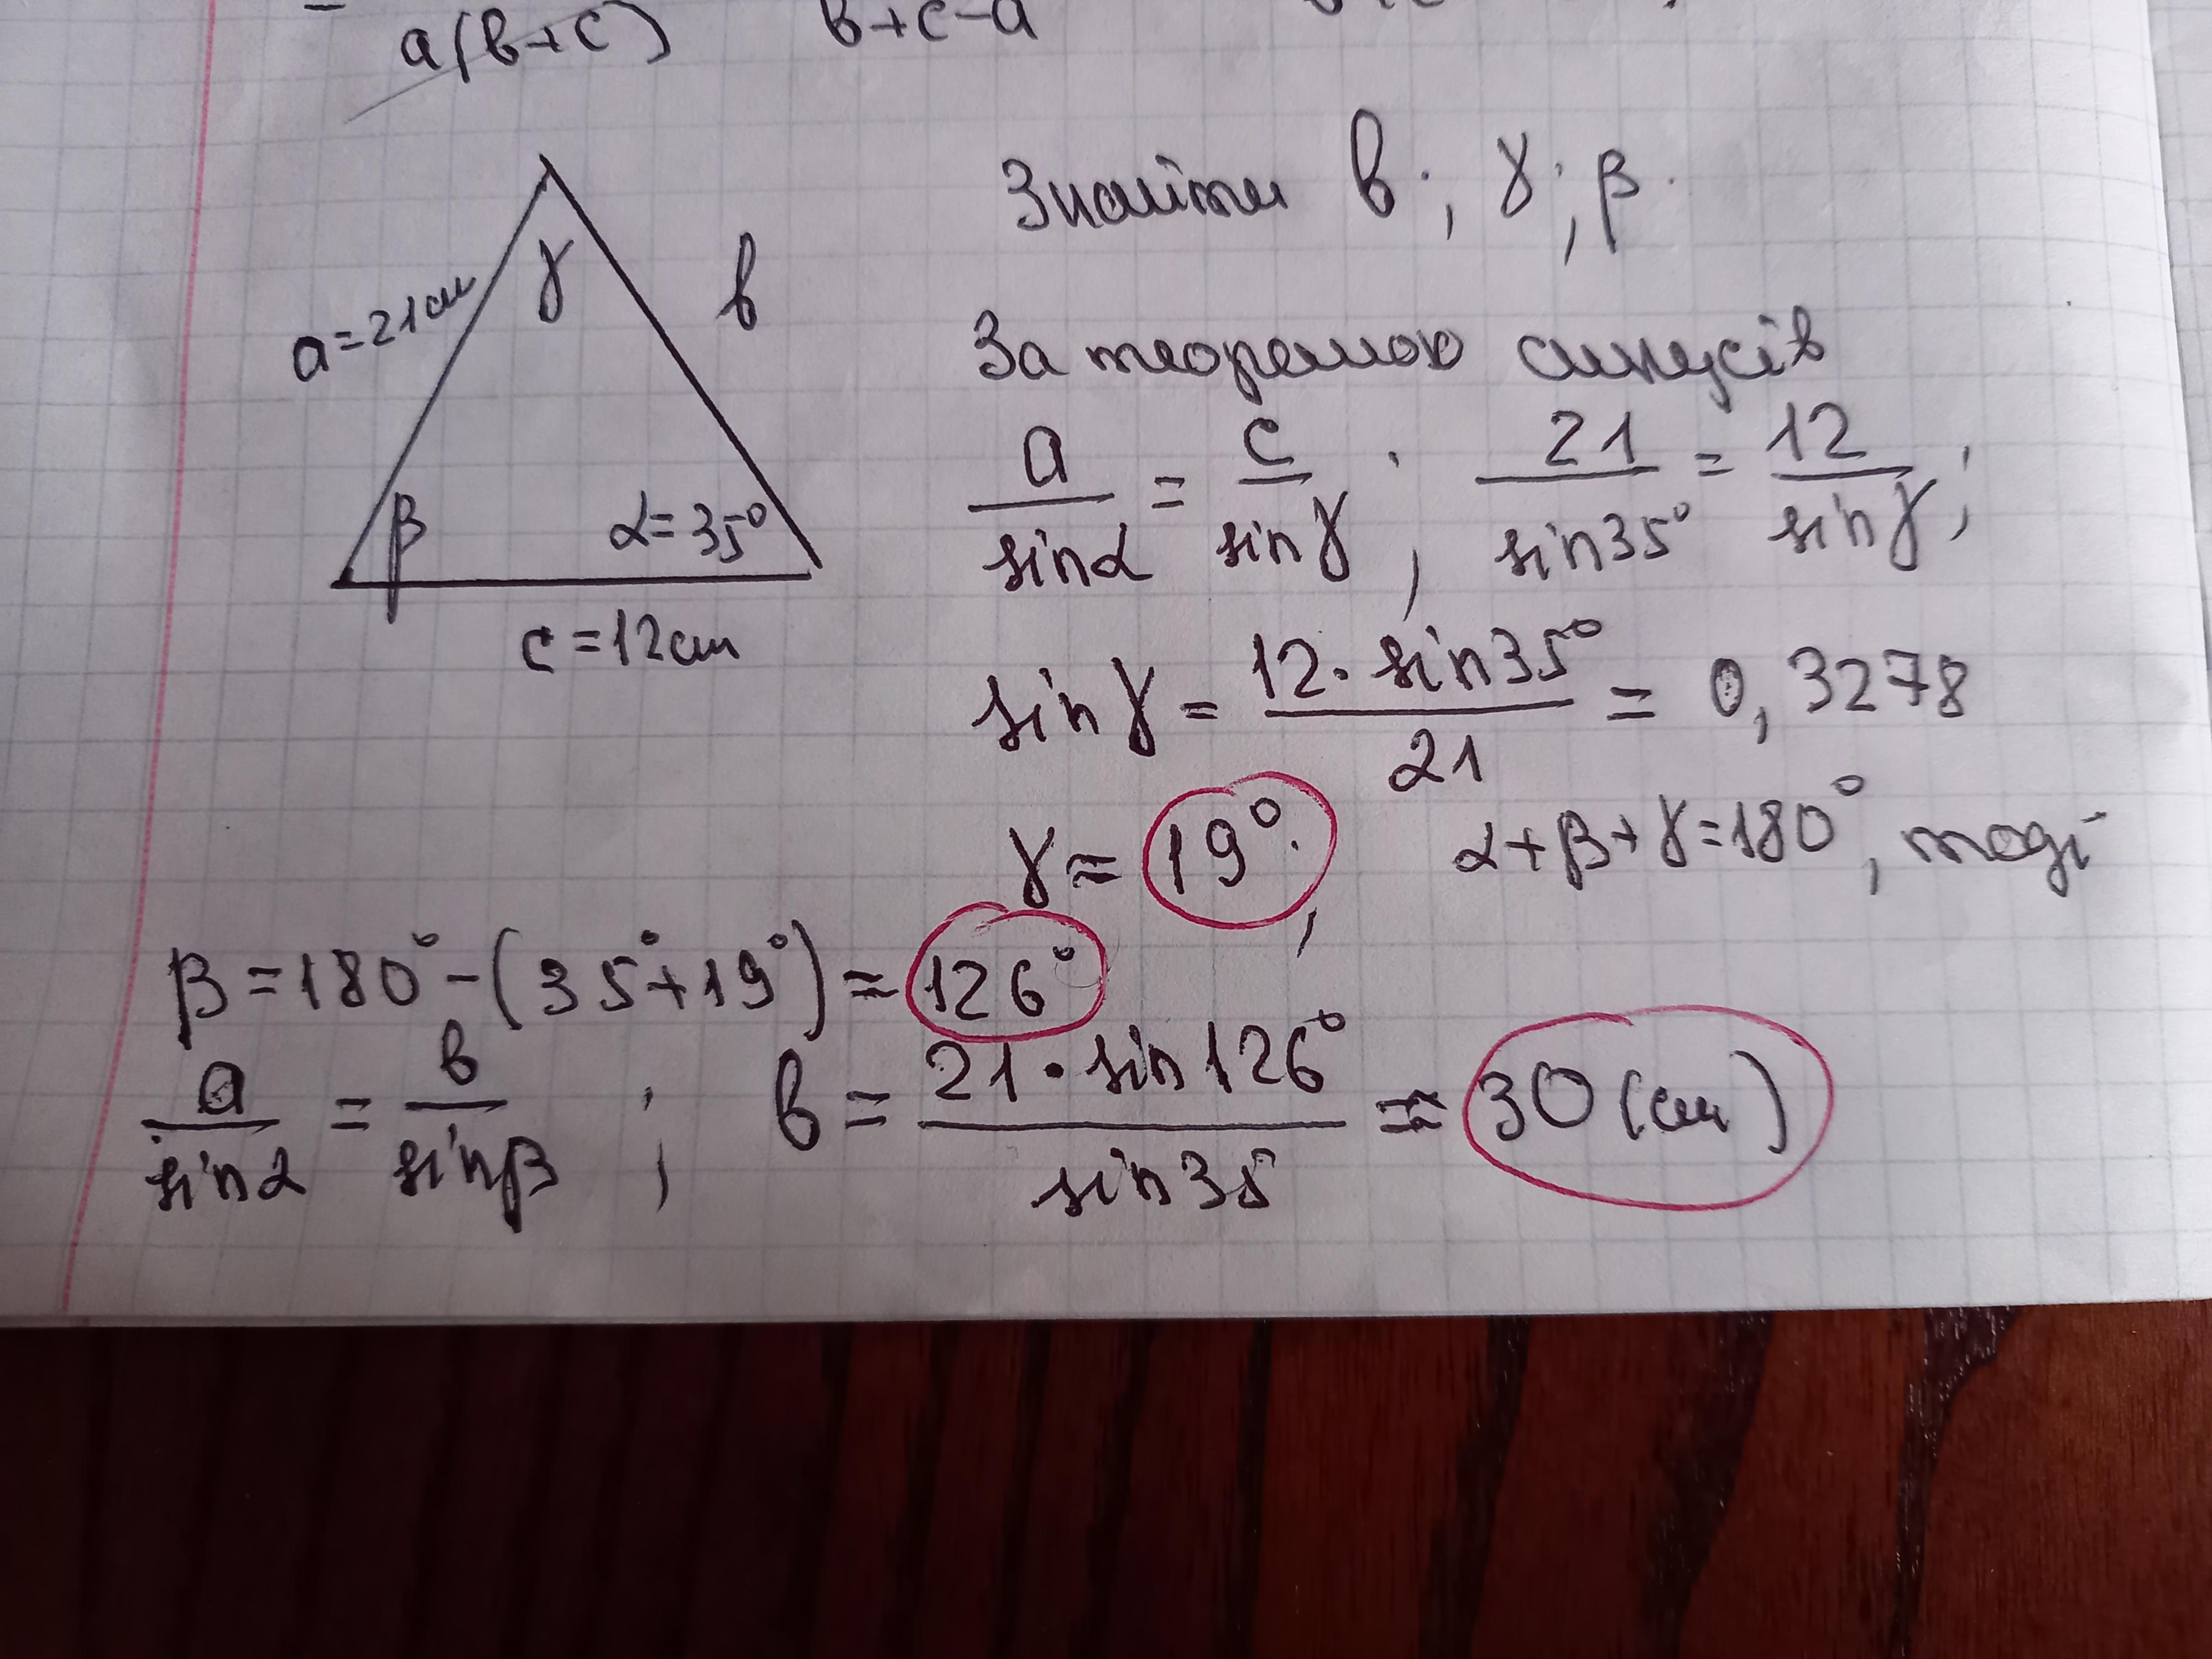 a(в+c) в+c-a
Знайти в; γ; β.
a=21см
γ
в
β
α=35°
c=12см
За теоремою синусів
a/sinα = c/sinγ; 21/sin35° = 12/sinγ;
sinγ = 12·sin35°/21 = 0,3278
γ≈19°; α+β+γ=180°, тоді
β=180°-(35°+19°)≈126°
a/sinα = в/sinβ; в = 21·sin126°/sin35 ≈ 30(см)